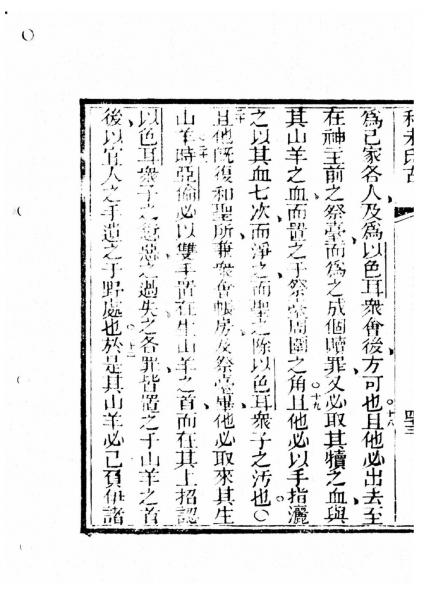 為己家各人及為以色耳衆會後方可也且他必出去至
在神主前之祭臺而為之成個贖罪又必取其犢之血與
其山羊之血而置之于祭臺周圍之角且他必以手指灑
之以其血七次而淨之而聖之除以色耳衆子之汚也〇
且他既復和聖所兼衆會帳房及祭臺畢他必取來其生
山羊時亞倫必以雙手置在生山羊之首而在其上招認
以色耳衆子之惡之過失之各罪皆置之于山羊之首
後以宜人之手遣之于野處也於是其山羊必己負伊諸